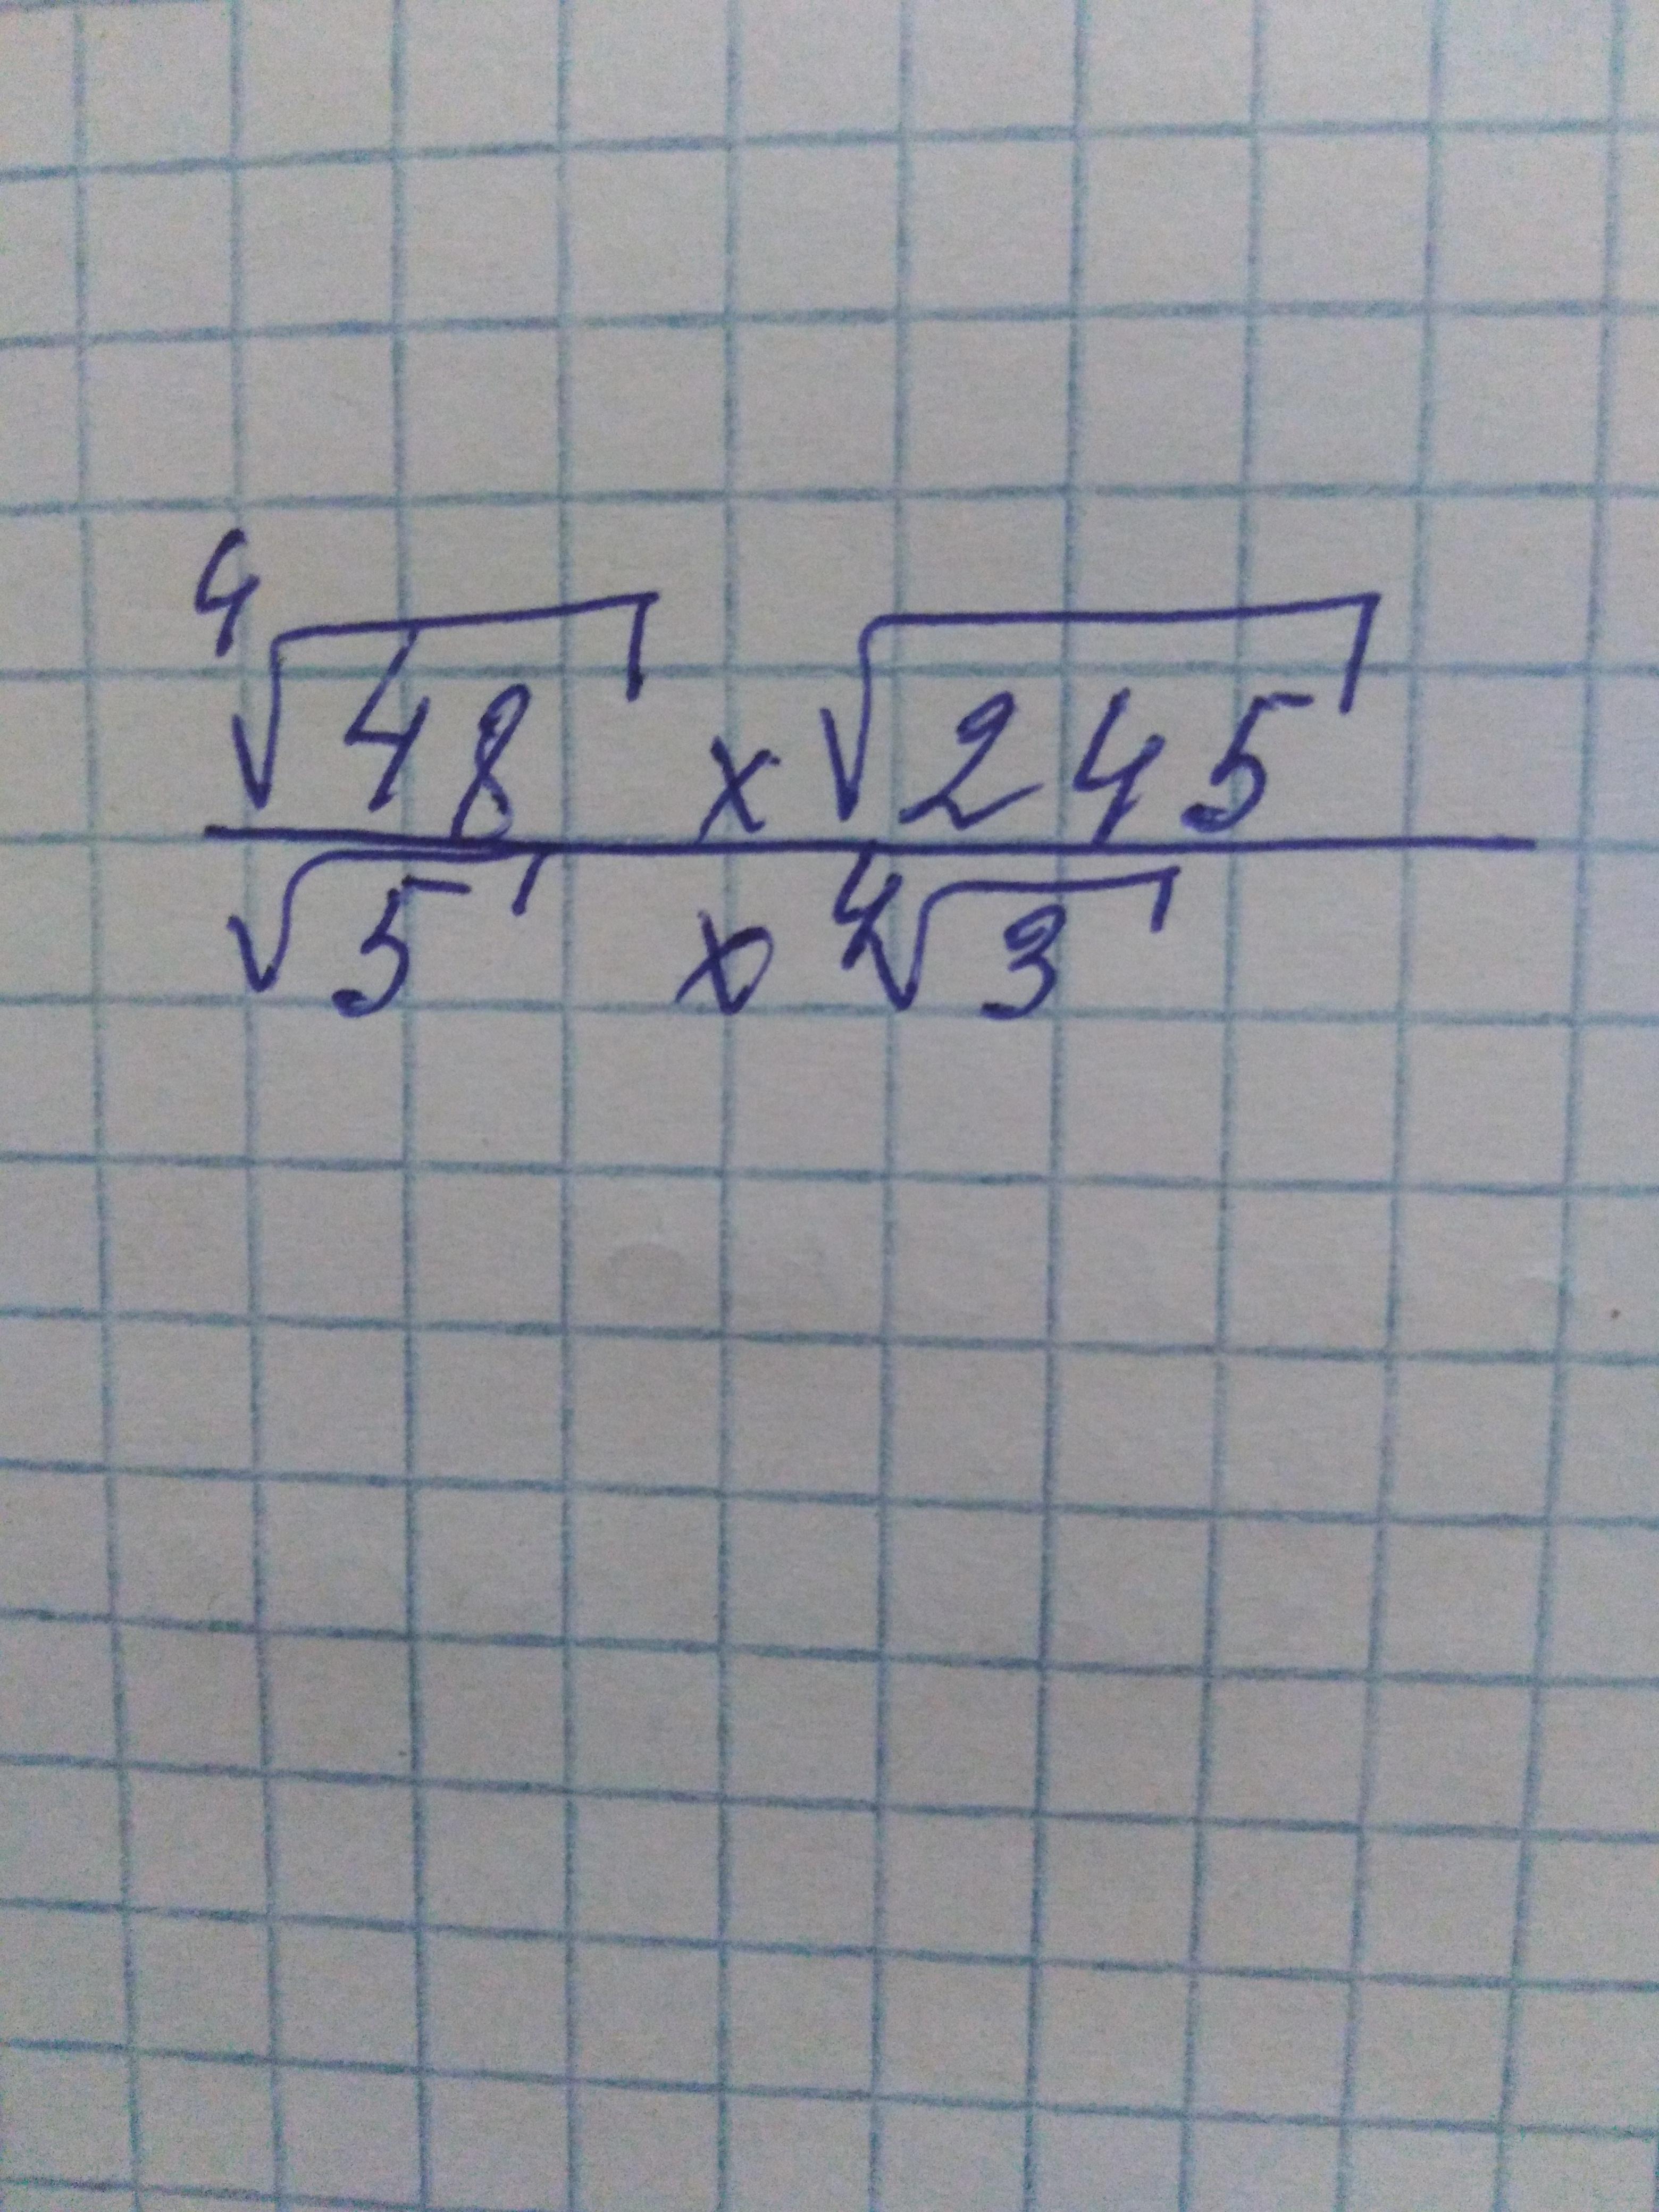 ⁴√48 × √245
√5 × ⁴√3